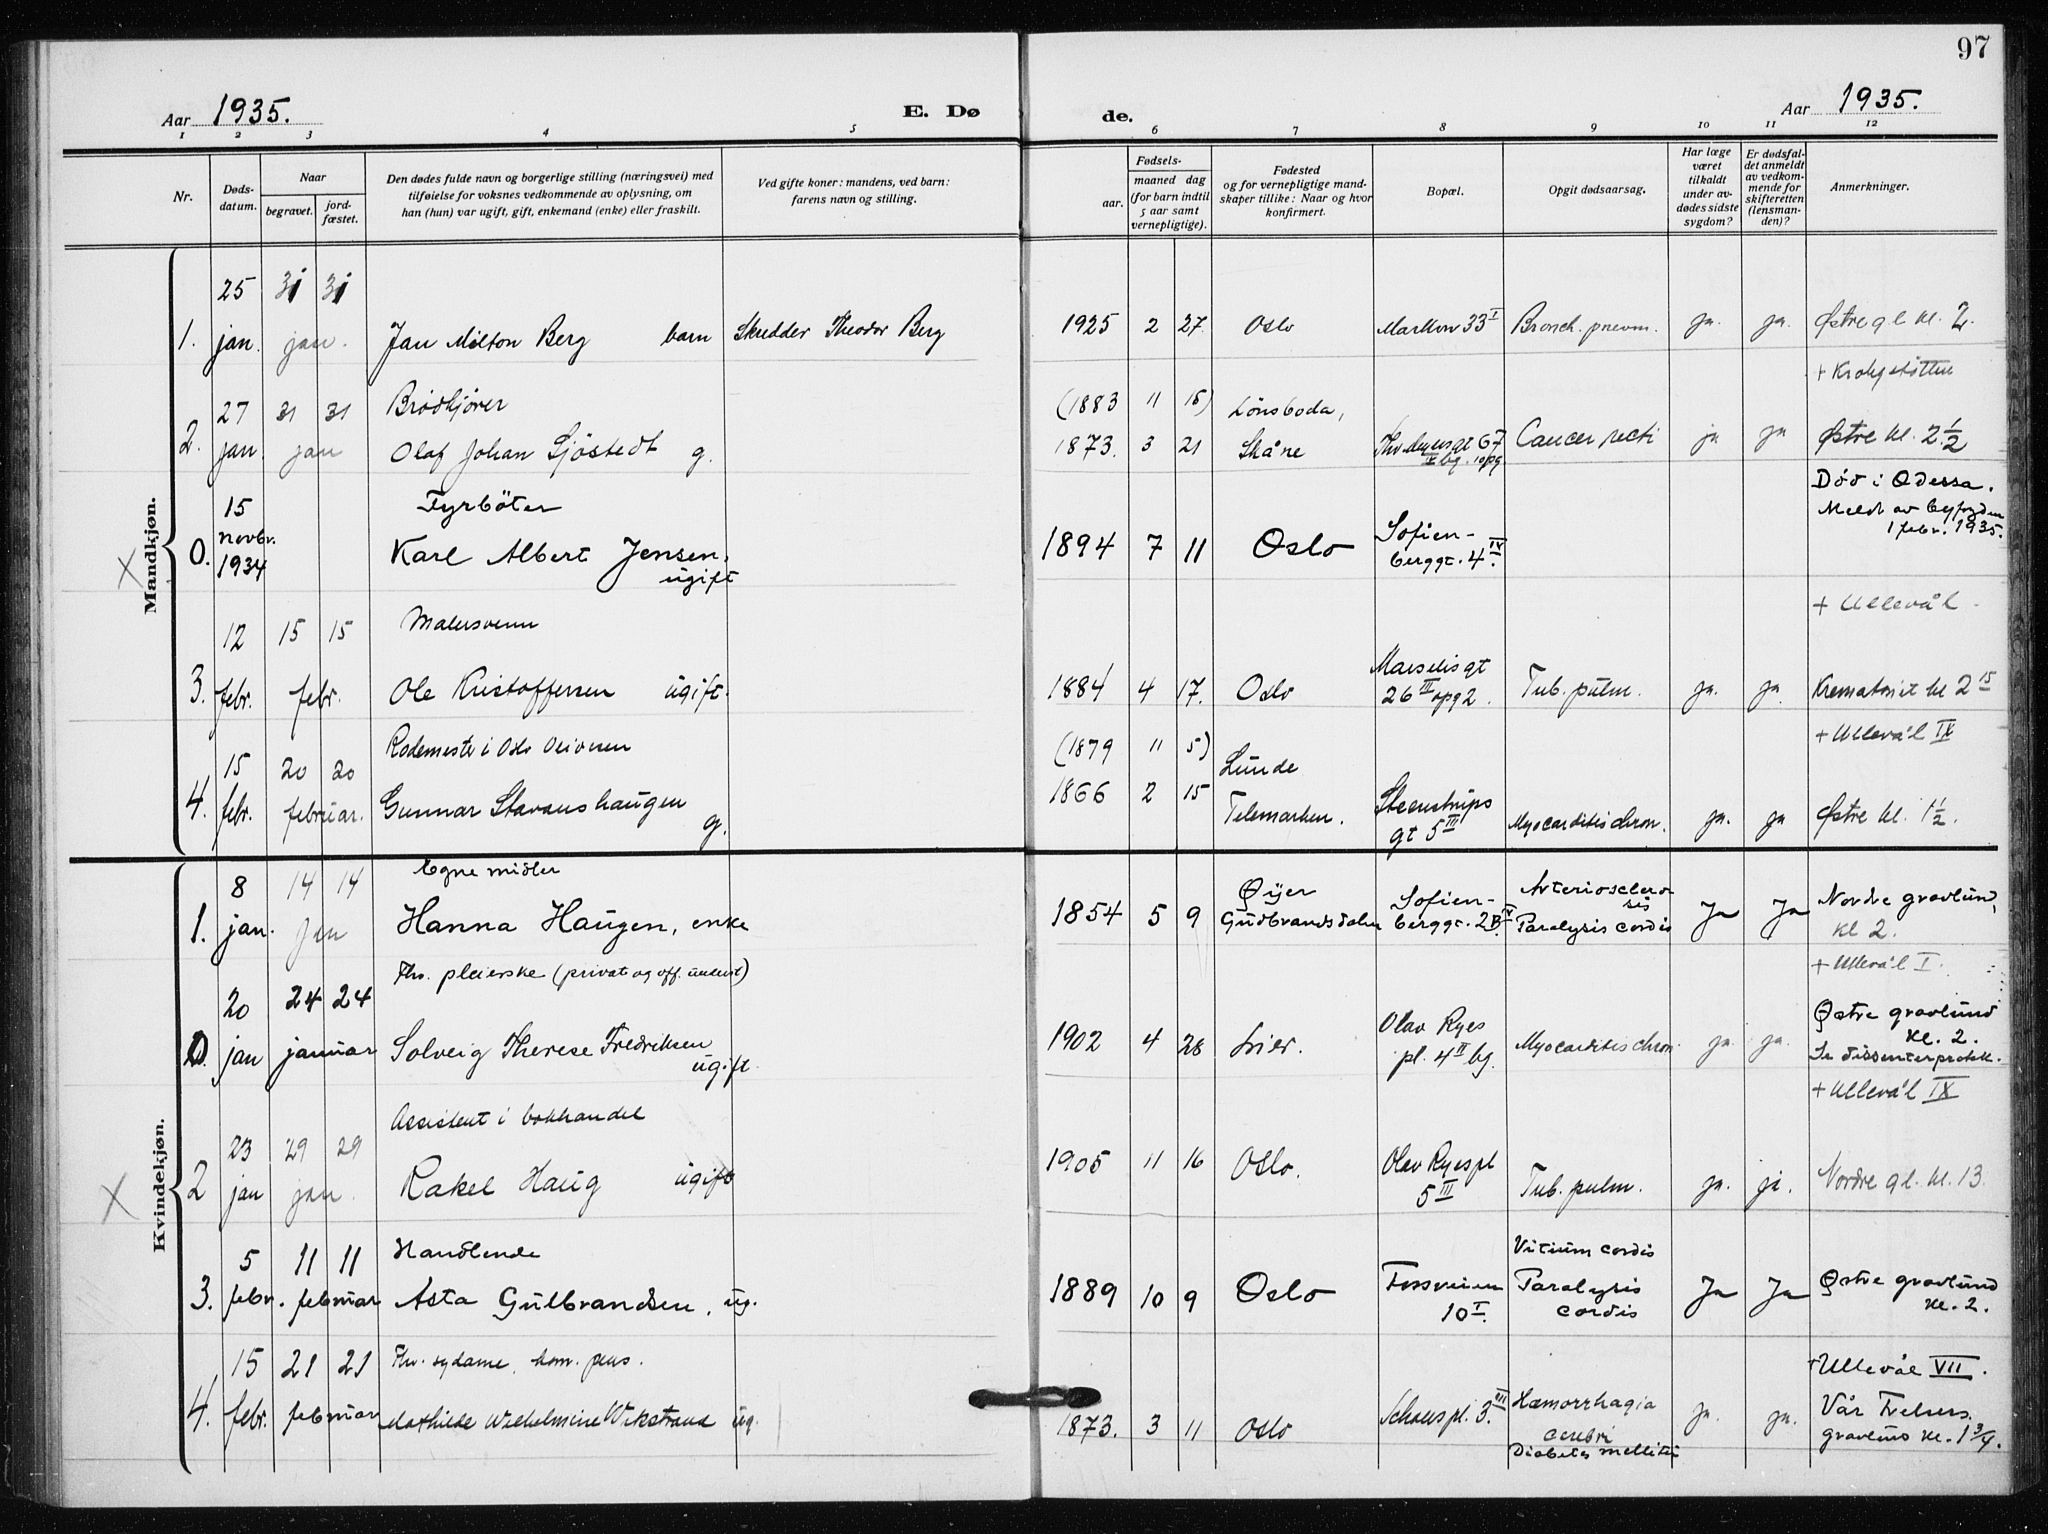 97
Aar 1935. E. Dø
de. Aar 1935.
1 2 3 4 5
6 7 8 9 10 11 12
Nr.
Døds-
datum.
Naar
begravet.
jord-
fæstet.
Den dødes fulde navn og borgerlige stilling (næringsvei) med
tilføielse for voksnes vedkommende av oplysning, om
han (hun) var ugift, gift, enkemand (enke) eller fraskilt.
Ved gifte koner: mandens, ved barn:
farens navn og stilling.
Fødsels-
aar.
maaned dag
(for barn indtil
5 aar samt
vernepligtige).
Fødested
og for vernepligtige mand-
skaper tillike: Naar og hvor
konfirmert.
Bopæl.
Opgit dødsaarsag.
Har læge
været
tilkaldt
under av-
dødes sidste
sygdom?
Er dødsfal-
det anmeldt
av vedkom-
mende for
skifteretten
(lensman-
den)?
Anmerkninger.
Mandkjøn.
25 31 31
1. jan. jan. Jan Milton Berg barn Skredder Theodor Berg
1925 2 27. Oslo Markvn 33 I Bronch. pneum. ja. ja. Østre gl kl. 2.
+ Krohgstøtten
27 31 31 Brødkjører
(1883 11 15) Lönsboda,
2. jan. jan Olaf Johan Sjöstedt g.
1873. 3 21 Skåne 67 Cancer recti ja ja Østre kl. 2 1/2
V bg. opg
15 Fyrbøter
Død i Odessa.
Meldt av byfogden
1 febr. 1935.
X 0. novbr. 1934 Karl Albert Jensen, ugift
1894 7 11 Oslo Sofien-
berggt. 4 IV.
+ Ullevål
12 15 15 Malersvenn
3. febr. febr. Ole Kristoffersen ugift.
1884 4 17. Oslo Marselisgt
26 III opg 2. Tub. pulm. ja. ja. Krematoriet kl 2 15
+ Ullevål IX
15 20 20 Rodemester i Oslo
(1879 11 5) Lunde
4. febr. februar. Gunnar Stavanshaugen g.
1866 2 15 Telemarken. Steenstrups
gt 5 III Myocarditis chron. ja. ja Østre kl. 1 1/2.
Kvindekjøn.
8 14 14 Egne midler
1. jan. jan Hanna Haugen, enke
1854 5 9 Øyer
Gudbrandsdalen Sofien-
berggt. 2B IV. Arteriosclero-
sis
Paralysis cordis Ja Ja Nordre gravlund,
kl 2.
+ Ullevål I.
20 24 24 Fhv. pleierske (privat og off. underst)
0. jan januar Solveig Therese Fredriksen ugift.
1902 4 28 Lier. Olav Ryes
pl. 4 II bg. Myocarditis chron. ja. ja. Østre gravlund
kl. 2.
Se dissenterprotk.
+ Ullevål IX
23 29 29 Assistent i bokhandel
X 2 jan jan. Rakel Haug ugift
1905 11 16 Oslo. Olav Ryes pl
5 III Tub. pulm. ja. ja. Nordre gl. kl. 13
5 11 11 Handlende
3. febr. februar Asta Gulbrandsen, ug.
1889 10 9 Oslo Fossveien
10 I. Vitium cordis
Paralysis
cordis Ja Ja Østre gravlund
kl. 2.
15 21 21 Fhv. sydame, kom. pens.
+ Ullevål VII.
4. febr. februar Mathilde Wilhelmine Wikstrand ug.
1873. 3 11 Oslo Schouspl. 3. VII Hæmorrhagia
cerebri
Diabetes mellitus ja. ja. Vår Frelsers
gravlund kl. 1 3/4.